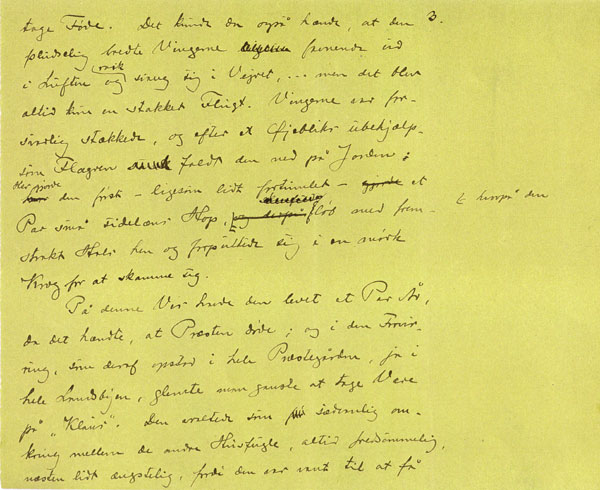 3.
tage Føde. Det kunde da også hænde, at den
pludselig bredte Vingerne prøvende ud
i Luften og svang sig i Vejret, ... men det blev
altid kun en stakket Flugt. Vingerne var for-
svarlig stækkede, og efter et Øjebliks ubehjælp-
som Flagren faldt den ned på Jorden;
den først - ligesom lidt fortumlet - et
Par små sidelæns Hop, løb med frem-
hvorpå den
strakt Hals hen og forputtede sig i en mørk
Krog for at skamme sig.
På denne Vis havde den levet et Par År,
da det hændte, at Præsten døde; og i den Forvir-
ring, som deraf opstod i hele Præstegården, ja i
hele Landsbyen, glemte man ganske at tage Vare
på "Klavs". Den væltede som sædvanlig om-
kring mellem de andre Husfugle, altid fredsommelig,
næsten lidt ængstelig, fordi den var vant til at få